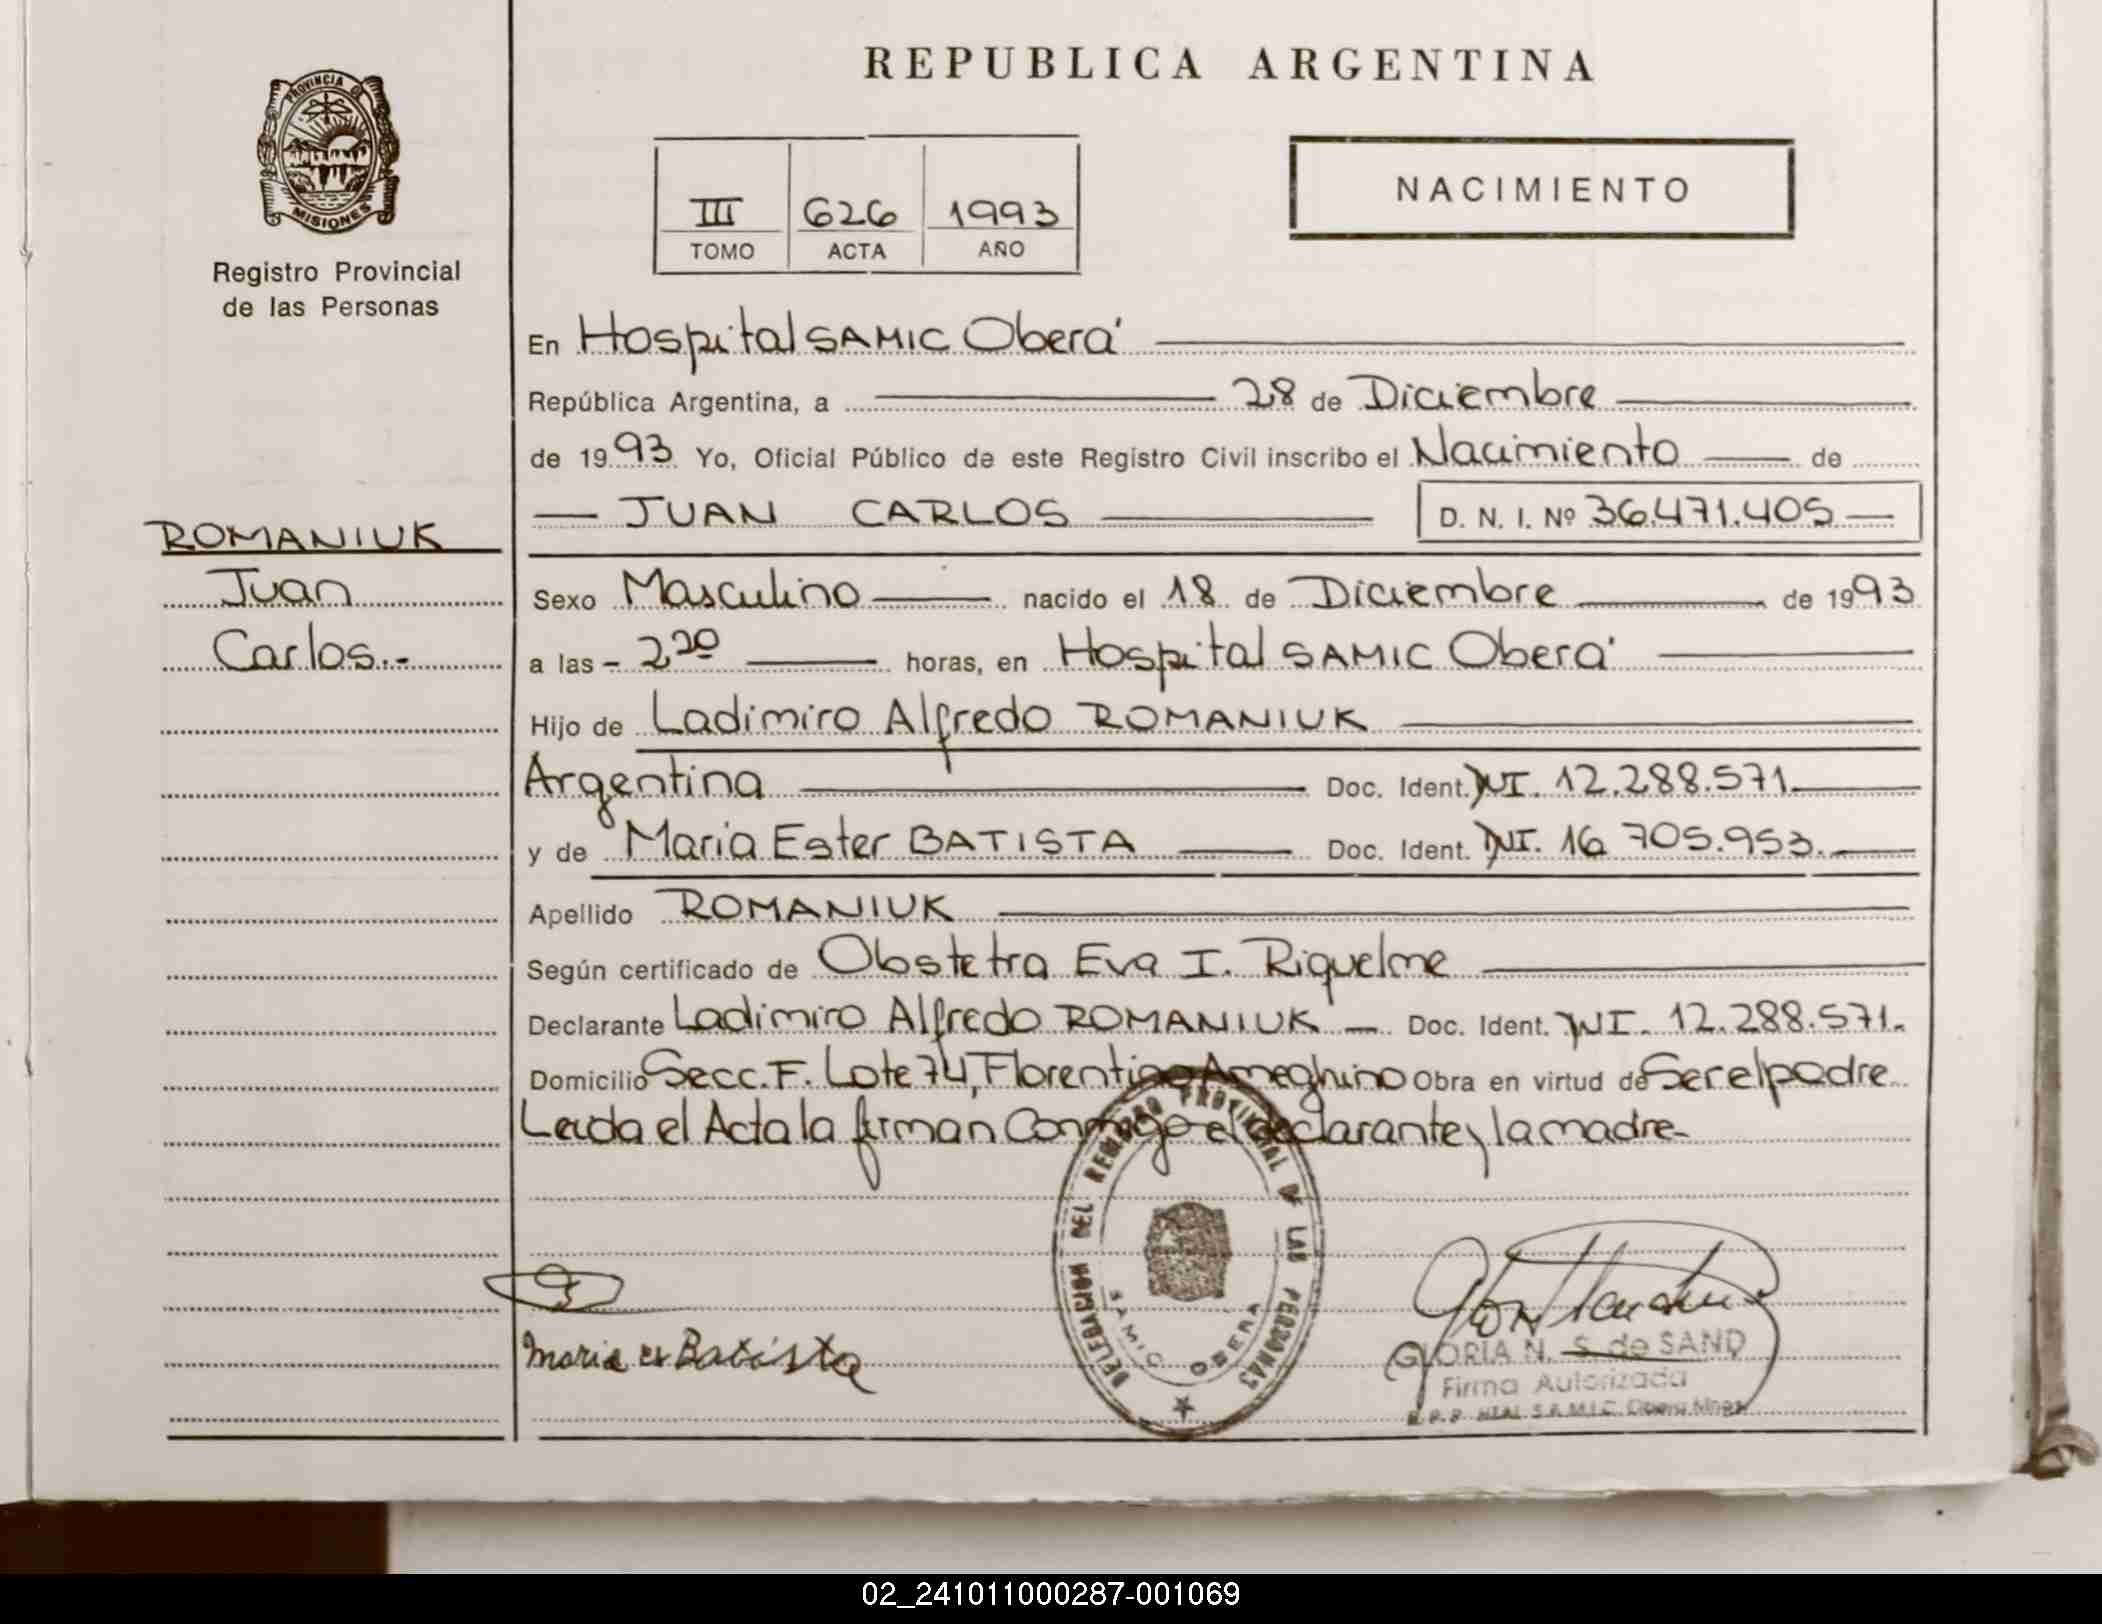 REPUBLICA ARGENTINA
PROVINCIA DE
MISIONES
Registro Provincial
de las Personas
III 626 1993
TOMO ACTA AÑO
NACIMIENTO
En Hospital SAMIC Oberá
República Argentina, a 28 de Diciembre
de 1993 Yo, Oficial Público de este Registro Civil inscribo el Nacimiento de
JUAN CARLOS D. N. I. Nº 36.471.405
ROMANIUK
Juan
Carlos.-
Sexo Masculino nacido el 18 de Diciembre de 1993
a las - 2 20 horas, en Hospital SAMIC Oberá
Hijo de Ladimiro Alfredo ROMANIUK
Argentina Doc. Ident. DNI. 12.288.571.
y de Maria Ester BATISTA Doc. Ident. DNI. 16 705.953.
Apellido ROMANIUK
Según certificado de Obstetra Eva I. Riquelme
Declarante Ladimiro Alfredo ROMANIUK - Doc. Ident. DNI. 12.288.571.
Domicilio Secc. F. Lote 74, Florentino Ameghino Obra en virtud de Ser el padre
Leida el Acta la firman Conmigo el declarante y la madre-
DELEGACION DEL REGISTRO PROVINCIAL DE LAS PERSONAS
SAMIC OBERA
Maria E Batista
GLORIA N. S. de SAND
Firma Autorizada
02_241011000287-001069